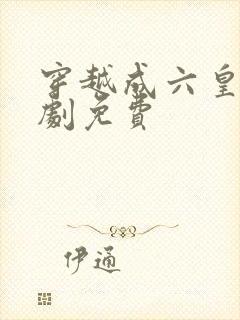 穿越成六皇
劇免費
伊通